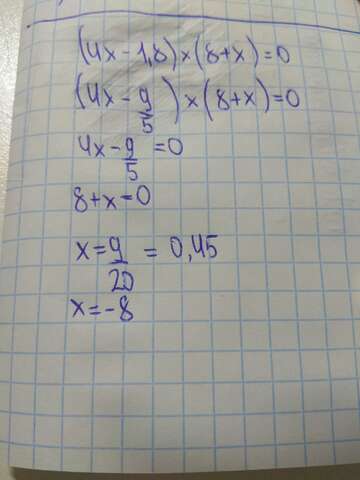 (4x-1,8)×(8+x)=0
(4x-9/5)×(8+x)=0
4x-9/5=0
8+x=0
x=9/20=0,45
x=-8